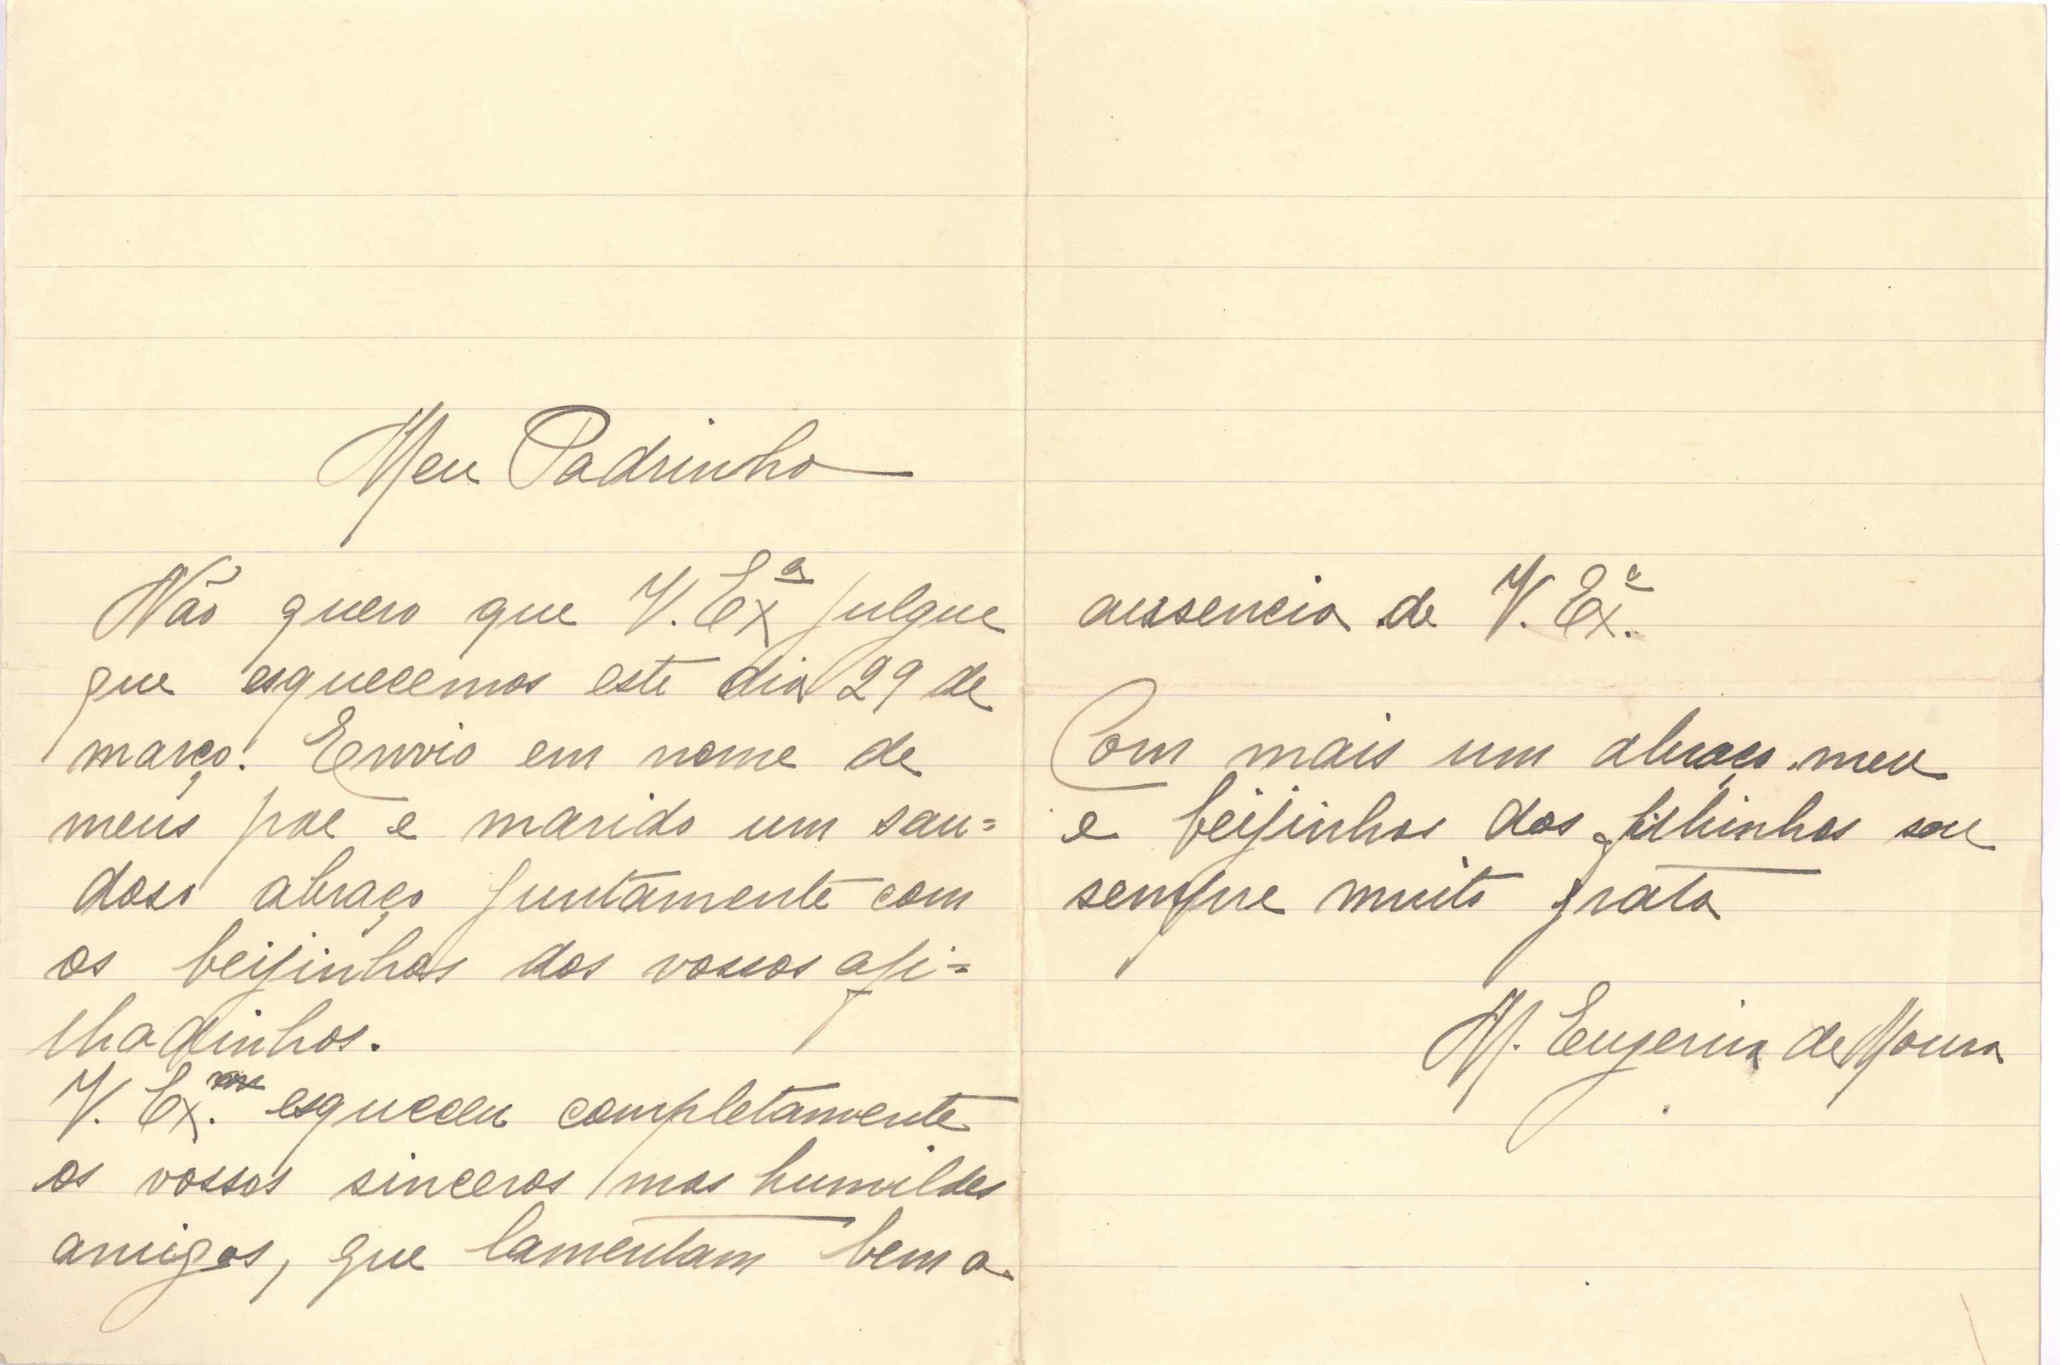 Meu Padrinho
Não quero que V. Exª julgue
que esquecemos este dia 29 de
março. Envio em nome de
meus pae e marido um sau=
doso abraço juntamente com
os beijinhos dos vossos afi=
lhadinhos.
V. Ex. esqueceu completamente
os vossos sinceros mas humildes
amigos, que lamentam bem a
aussencia de V. Exª.
Com mais um abraço meu
e beijinhos dos filhinhos sou
sempre muito grata
M. Eugenia de Moura